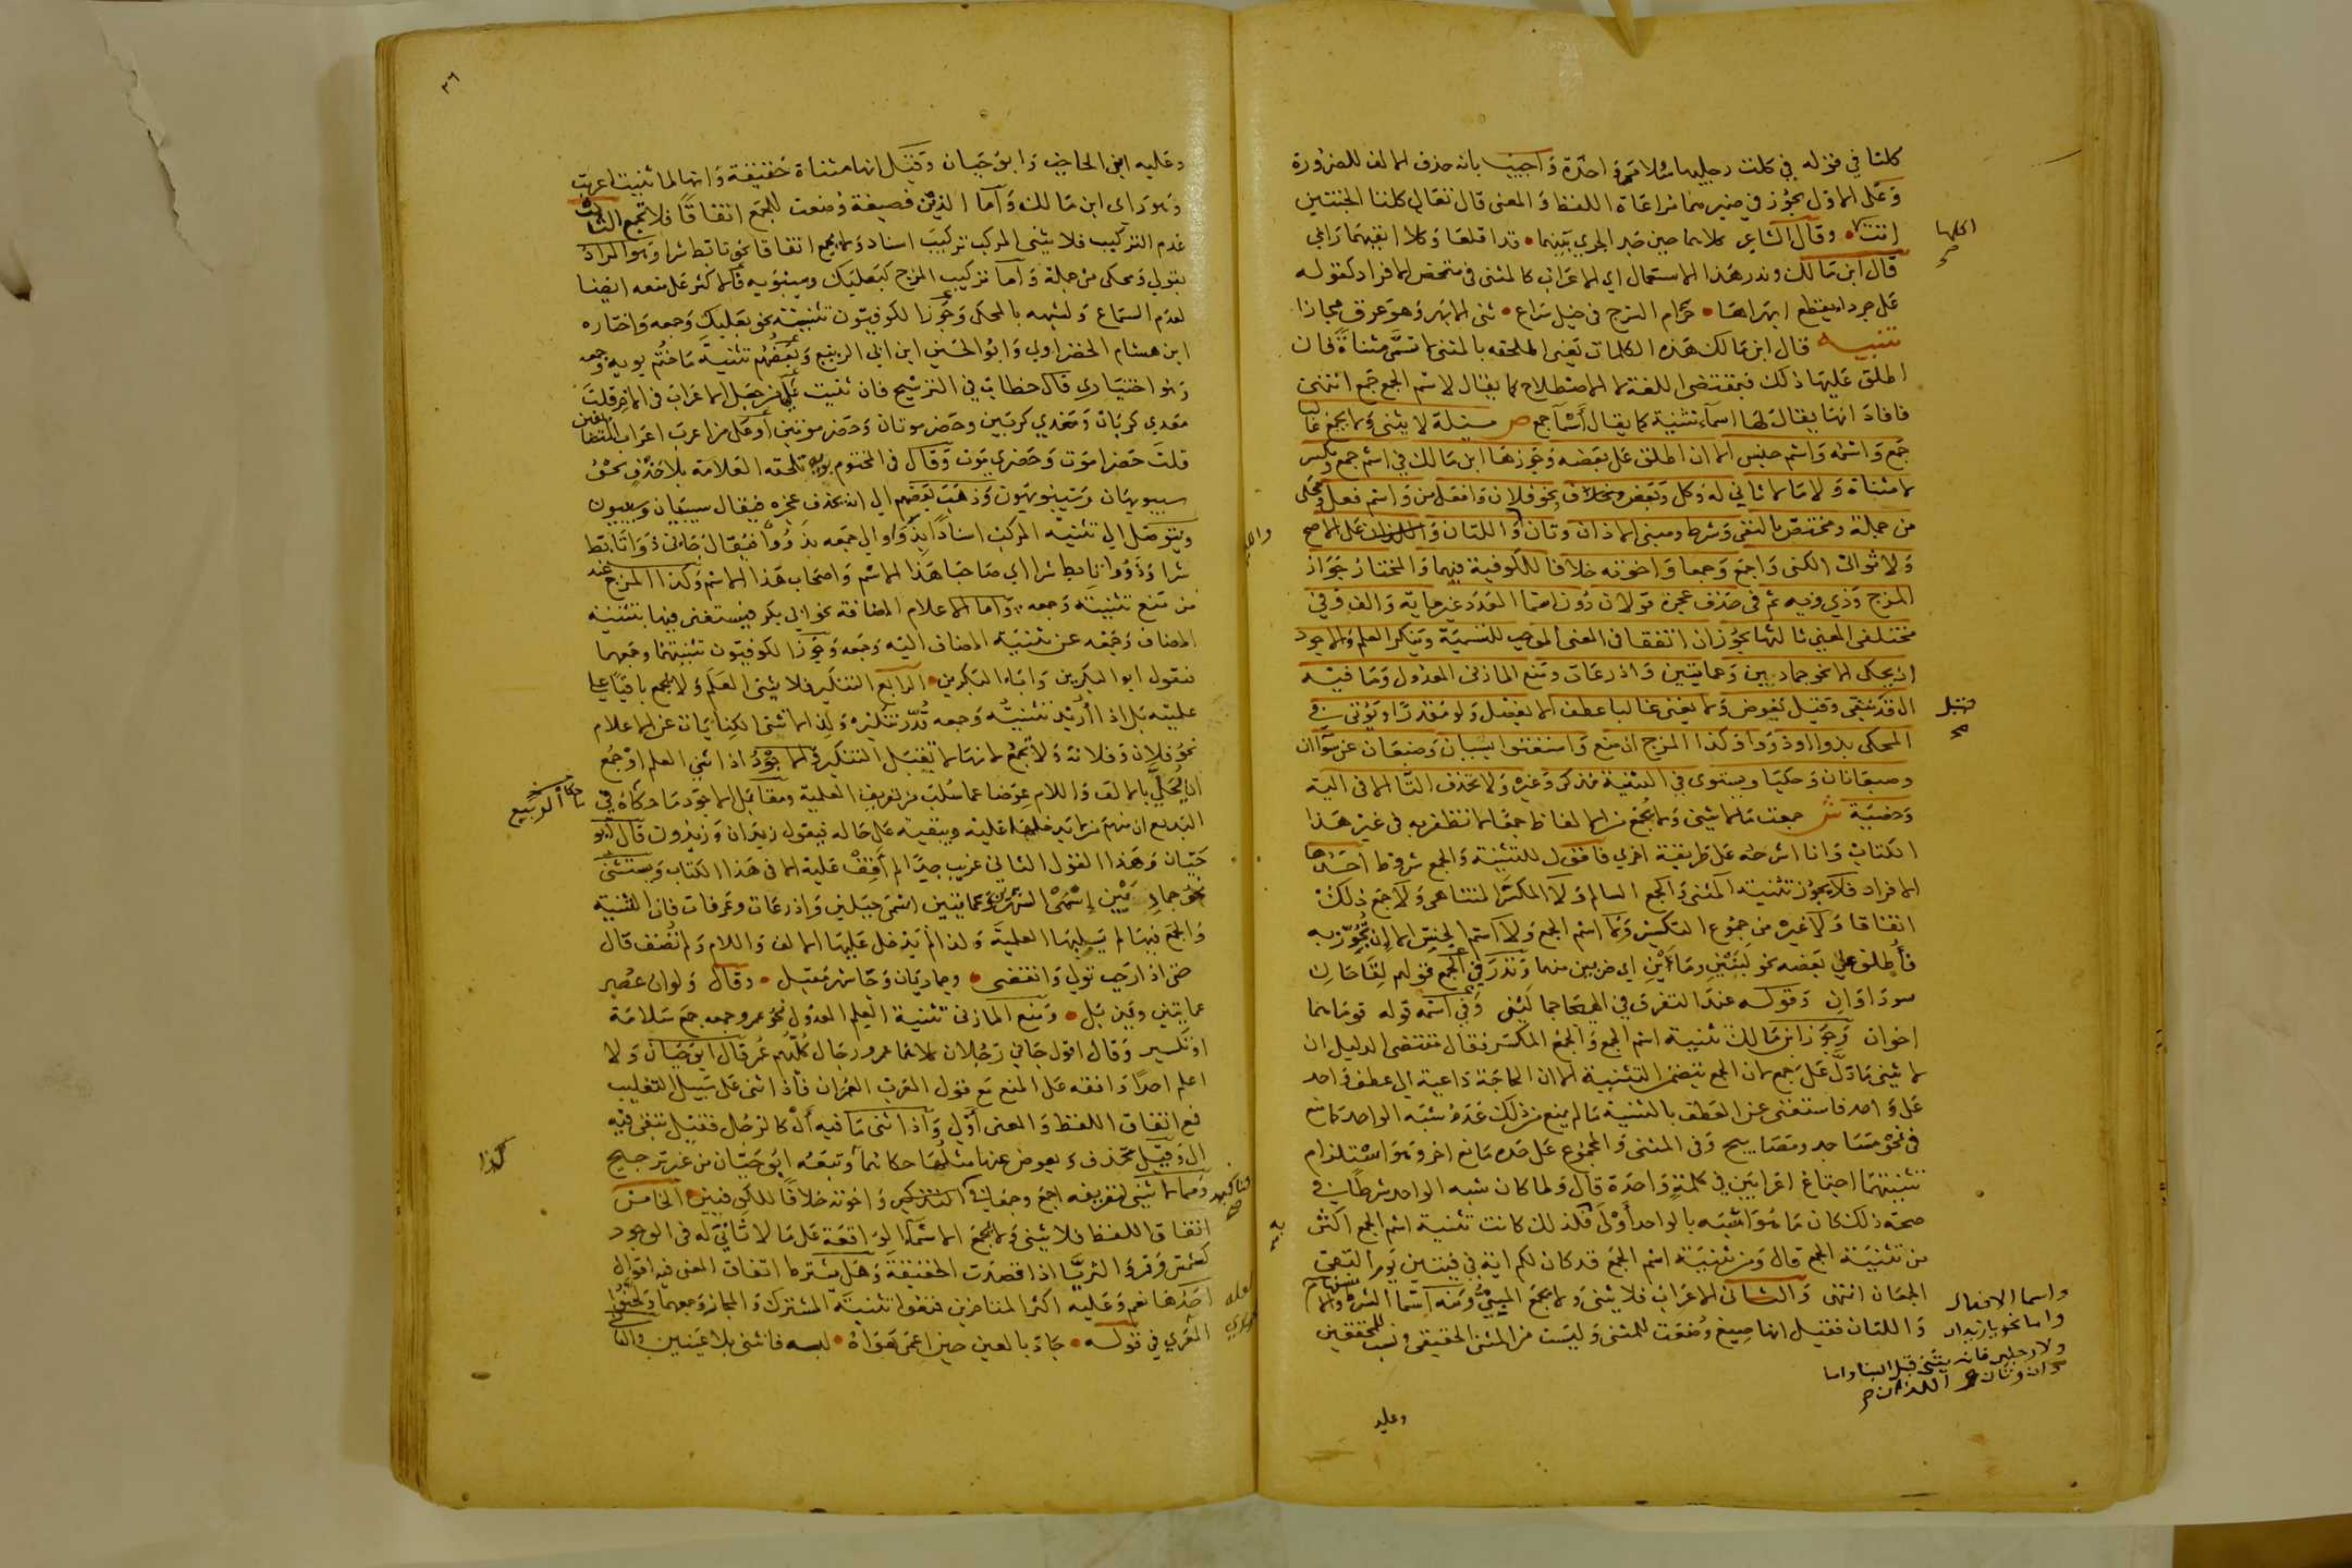 كلتا في قوله في كلت رجليها سلامى واحدة واجيب بانه حذف الالف للضرورة
وعلى الاول يجوز في ضميرهما مراعاة اللفظ والمعنى قال تعالى كلتا الجنتين
اتت اكلها وقال الشاعر كلاهما حين جد الجري بينهما قد اقلعا وكلا انفيهما رابي
قال ابن مالك وندر هذا الاستعمال اي الاعراب كالمثنى في متمحض الافراد كقوله
على جرداء يقطع ابهراها حزام السرج في خيل سراع ثنى الابهر وهو عرق مجازا
تنبيه قال ابن مالك هذه الكلمات يعني الملحقه بالمثنى لا تسمى مثناة فان
اطلق عليها ذلك فبمقتضى اللغة لا الاصطلاح كما يقال لاسم الجمع جمع انتهى
فافاد انها يقال لها اسماء تثنية كما يقال اسماء جمع ص مسئلة لا يثنى ولا يجمع غالبا
جمع واسمه واسم جنس الا ان اطلق على بعضه وجوزها ابن مالك في اسم جمع ومكسر
لا مثناة ولا ما لا ثاني له وكل وبعض ونحو فلان وافعل من واسم فعل ومحكى
من جملة ومختص بالنفي وشرط ومبنى الا ذان وتان واللتان واللذان على الاصح
ولا ثواني الكنى واجمع وجمعا واخوته خلافا للكوفية فيهما والمختار جواز
المزج وذي ويه ثم في حذف عجزه قولان دون اسما العدد غير مايه والف وفي
مختلفي المعنى ثالثها يجوز ان اتفقا في المعنى الموجب للتسمية وينكر العلم والاجود
ان يحلى الا نحو جماديين وعمايتين واذرعات ومنع المازني المعدول وما فيه
ال فقيل تبقى وقيل يعوض ولا يغني غالبا عطف الا بفصل ولو مقدرا ويؤتى في
المحكى بذوا وذوو وكذا المزج ان منع واستغنوا بسيان وضبعان عن سواان
وضبعانان وحكيا ويستوي في التثنية مذكر وغيره ولا تحذف التا الا في الية
وخصية ش جمعت ما لا يثنى ولا يجمع من الالفاظ جمعا لا تظفر به في غير هذا
الكتاب وانا اشرحه على طريقة اخرى فاقول للتثنية والجمع شروط احدها
الافراد فلا يجوز تثنية المثنى والجمع السالم ولا المكسر المتناهي ولا جمع ذلك
اتفاقا ولا غيره من جموع التكسير ولا اسم الجمع ولا اسم الجنس الا ان تجوز به
فأطلق على بعضه نحو لبنين وماءين اي ضربين منهما وندر في الجمع قولهم لقاحان
سوداوان وقوله عند التفرق في الهيجا جمالين وفي اسمه قوله قوماهما
اخوان وجوز ابن مالك تثنية اسم الجمع والجمع المكسر فقال مقتضى الدليل ان
لا يثنى ما دل على جمع لان الجمع يتضمن التثنية الا ان الحاجة داعية الى عطف واحد
على واحد فاستغنى عن العطف بالتثنية ما لم يمنع من ذلك عدم شبه الواحد كما منع
في نحو مساجد ومصابيح وفي المثنى والمجموع على حده مانع اخر وهو استلزام
تثنيتهما اجتماع اعرابين في كلمة واحدة قال ولما كان شبه الواحد شرطا في
صحة ذلك كان ما هو اشبه بالواحد أولى فلذلك كانت تثنية اسم الجمع اكثر
من تثنية الجمع قال ومن تثنية اسم الجمع قد كان لكم اية في فئتين يوم التقى
الجمعان انتهى والثاني الاعراب فلا يثنى ولا يجمع المبني ومنه اسما الشرط والاستفهام
واسما الافعال
واما نحو يا زيدان
ولا رجلين فانه يثنى قبل البنا واما
ذان وتان اللذان
واللتان فقيل انها صيغ وضعت للمثنى وليست من المثنى الحقيقي ونسب للمحققين
وعليه
٣٦
وعليه ابن الحاجب وابو حيان وقيل انها مثناة حقيقة وانها لما ثنيت اعربت
وهو راى ابن مالك وأما الذين فصيغة وضعت للجمع اتفاقا فلا تجمع الثالث
عدم التركيب فلا يثنى المركب تركيب اسناد ولا يجمع اتفاقا نحو تابط شرا وهو المراد
بقولي ومحكى من جملة وأما تركيب المزج كبعلبك وسيبويه فالاكثر على منعه ايضا
لعدم السماع ولشبهه بالمحكى وجوز الكوفيون تثنية نحو بعلبك وجمعه واختاره
ابن هشام الخضراوي وابو الحسين ابن ابي الربيع وبعضهم تثنية ما ختم بويه وجمعه
وهو اختياري قال خطاب في الترشيح فان ثنيت على من جعل الاعراب في الاخر قلت
معدي كربان ومعدي كربين وحضرموتان وحضرموتين أو على من اعرب اعراب المتضايفين
قلت حضرا موت وحضري موت وقال في المختوم بويه تلحقه العلامة بلا حذف نحو
سيبويهان وسيبويهون وذهب بعضهم الى انه يحذف عجزه فيقال سيبان وسيبون
ويتوصل الى تثنية المركب اسنادا بذوا والى جمعه بذوو فيقال جاني ذوا تابط
شرا وذووا تابط شرا اي صاحبا هذا الاسم واصحاب هذا الاسم وكذا المزج عند
من منع تثنيته وجمعه وأما الاعلام المضافة نحو ابي بكر فيستغنى فيها بتثنية
المضاف وجمعه عن تثنية المضاف اليه وجمعه وجوز الكوفيون تثنيتهما وجمعهما
فتقول ابوا البكرين واباء البكرين الرابع التنكير فلا يثنى العلم ولا يجمع باقيا على
علميته بل اذا أريد تثنيته وجمعه قدر تنكيره ولذا لا تثنى الكنايات عن الاعلام
نحو فلان وفلانة ولا تجمع لانها لا تقبل التنكير والاجود اذا ثني العلم او جمع
ان يحلى بالالف واللام عوضا عما سلب من تعريف العلمية ومقابل الاجود ما حكاه في
البديع ان منهم من لا يدخلها عليه ويبقيه على حاله فيقول زيدان وزيدون قال ابو
حيان وهذا القول الثاني غريب جدا لم أقف عليه الا في هذا الكتاب ويستثنى
نحو جماديين إسمى الشهرين وعمايتين اسمى جبلين واذرعات وعرفات فان التثنية
والجمع فيها لم يسلبها العلمية ولذا لم يدخل عليها الالف واللام ولم تضف قال
حتى اذا رجب تولى وانقضى وجماديان وجا شهر مقبل وقال ولو ان عصم
عمايتين ويذبل ومنع المازني تثنية العلم المعدول نحو عمر وجمعه جمع سلامة
او تكسير وقال اقول جاني رجلان كلاهما عمر ورجال كلهم عمر قال ابو حيان ولا
اعلم احدا وافقه على المنع مع قول العرب العمران فاذا ثنى على سبيل التغليب
فمع اتفاق اللفظ والمعنى أولى وأذا ثنى ما فيه أل كالرجل فقيل تبقى فيه
ال وقيل تحذف ويعوض عنها مثلها حكاهما وتبعه ابو حيان من غير ترجيح
ومما لا يثنى لتعريفه اجمع وجمعا في التوكيد واخوته خلافا للكوفيين الخامس
اتفاق اللفظ فلا يثنى ولا يجمع الاسماء الواقعة على ما لا ثاني له في الوجود
كشمس وقمر والثريا اذا قصدت الحقيقة وهل يشترط اتفاق المعنى فيه اقوال
احدها نعم وعليه اكثر المتاخرين فمنعوا تثنية المشترك والمجاز وجمعهما ولحنوا
المعري في قوله جاد بالعين حين اعمى هواه عينه فانثنى بلا عينين والثا